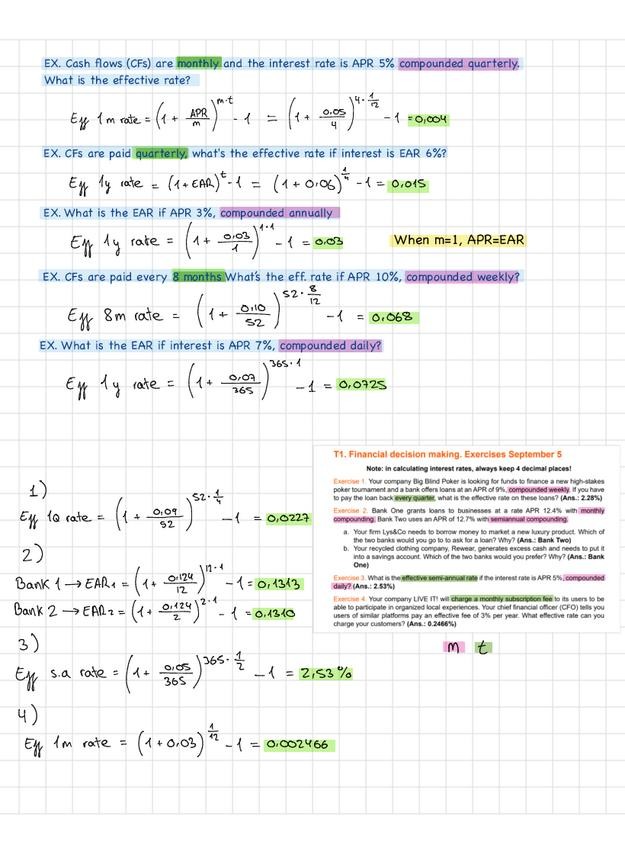 EX. Cash flows (CFs) are monthly and the interest rate is APR 5% compounded quarterly.
What is the effective rate?
Eff 1m rate = (1 + APR/m)^m·t - 1 = (1 + 0.05/4)^4·1/12 - 1 = 0,004
EX. CFs are paid quarterly, what's the effective rate if interest is EAR 6%?
Eff 1y rate = (1+EAR)^t - 1 = (1 + 0.06)^1/4 - 1 = 0,015
EX. What is the EAR if APR 3%, compounded annually
Eff 1y rate = (1 + 0.03/1)^1·1 - 1 = 0.03
When m=1, APR=EAR
EX. CFs are paid every 8 months What's the eff. rate if APR 10%, compounded weekly?
Eff 8m rate = (1 + 0,10/52)^52·8/12 - 1 = 0,068
EX. What is the EAR if interest is APR 7%, compounded daily?
Eff 1y rate = (1 + 0,07/365)^365·1 - 1 = 0,0725
T1. Financial decision making. Exercises September 5
Note: in calculating interest rates, always keep 4 decimal places!
Exercise 1. Your company Big Blind Poker is looking for funds to finance a new high-stakes
poker tournament and a bank offers loans at an APR of 9%, compounded weekly. If you have
to pay the loan back every quarter, what is the effective rate on these loans? (Ans.: 2.28%)
Exercise 2. Bank One grants loans to businesses at a rate APR 12.4% with monthly
compounding. Bank Two uses an APR of 12.7% with semiannual compounding.
a. Your firm Lys&Co needs to borrow money to market a new luxury product. Which of
the two banks would you go to to ask for a loan? Why? (Ans.: Bank Two)
b. Your recycled clothing company, Rewear, generates excess cash and needs to put it
into a savings account. Which of the two banks would you prefer? Why? (Ans.: Bank
One)
Exercise 3. What is the effective semi-annual rate if the interest rate is APR 5%, compounded
daily? (Ans.: 2.53%)
Exercise 4. Your company LIVE IT! will charge a monthly subscription fee to its users to be
able to participate in organized local experiences. Your chief financial officer (CFO) tells you
users of similar platforms pay an effective fee of 3% per year. What effective rate can you
charge your customers? (Ans.: 0.2466%)
m t
1)
Eff 1Q rate = (1 + 0,09/52)^52·1/4 - 1 = 0,0227
2)
Bank 1 → EAR1 = (1 + 0.124/12)^12·1 - 1 = 0,1313
Bank 2 → EAR2 = (1 + 0.124/2)^2·1 - 1 = 0.1310
3)
Eff s.a rate = (1 + 0,05/365)^365·1/2 - 1 = 2,53%
4)
Eff 1m rate = (1 + 0,03)^1/12 - 1 = 0,002466